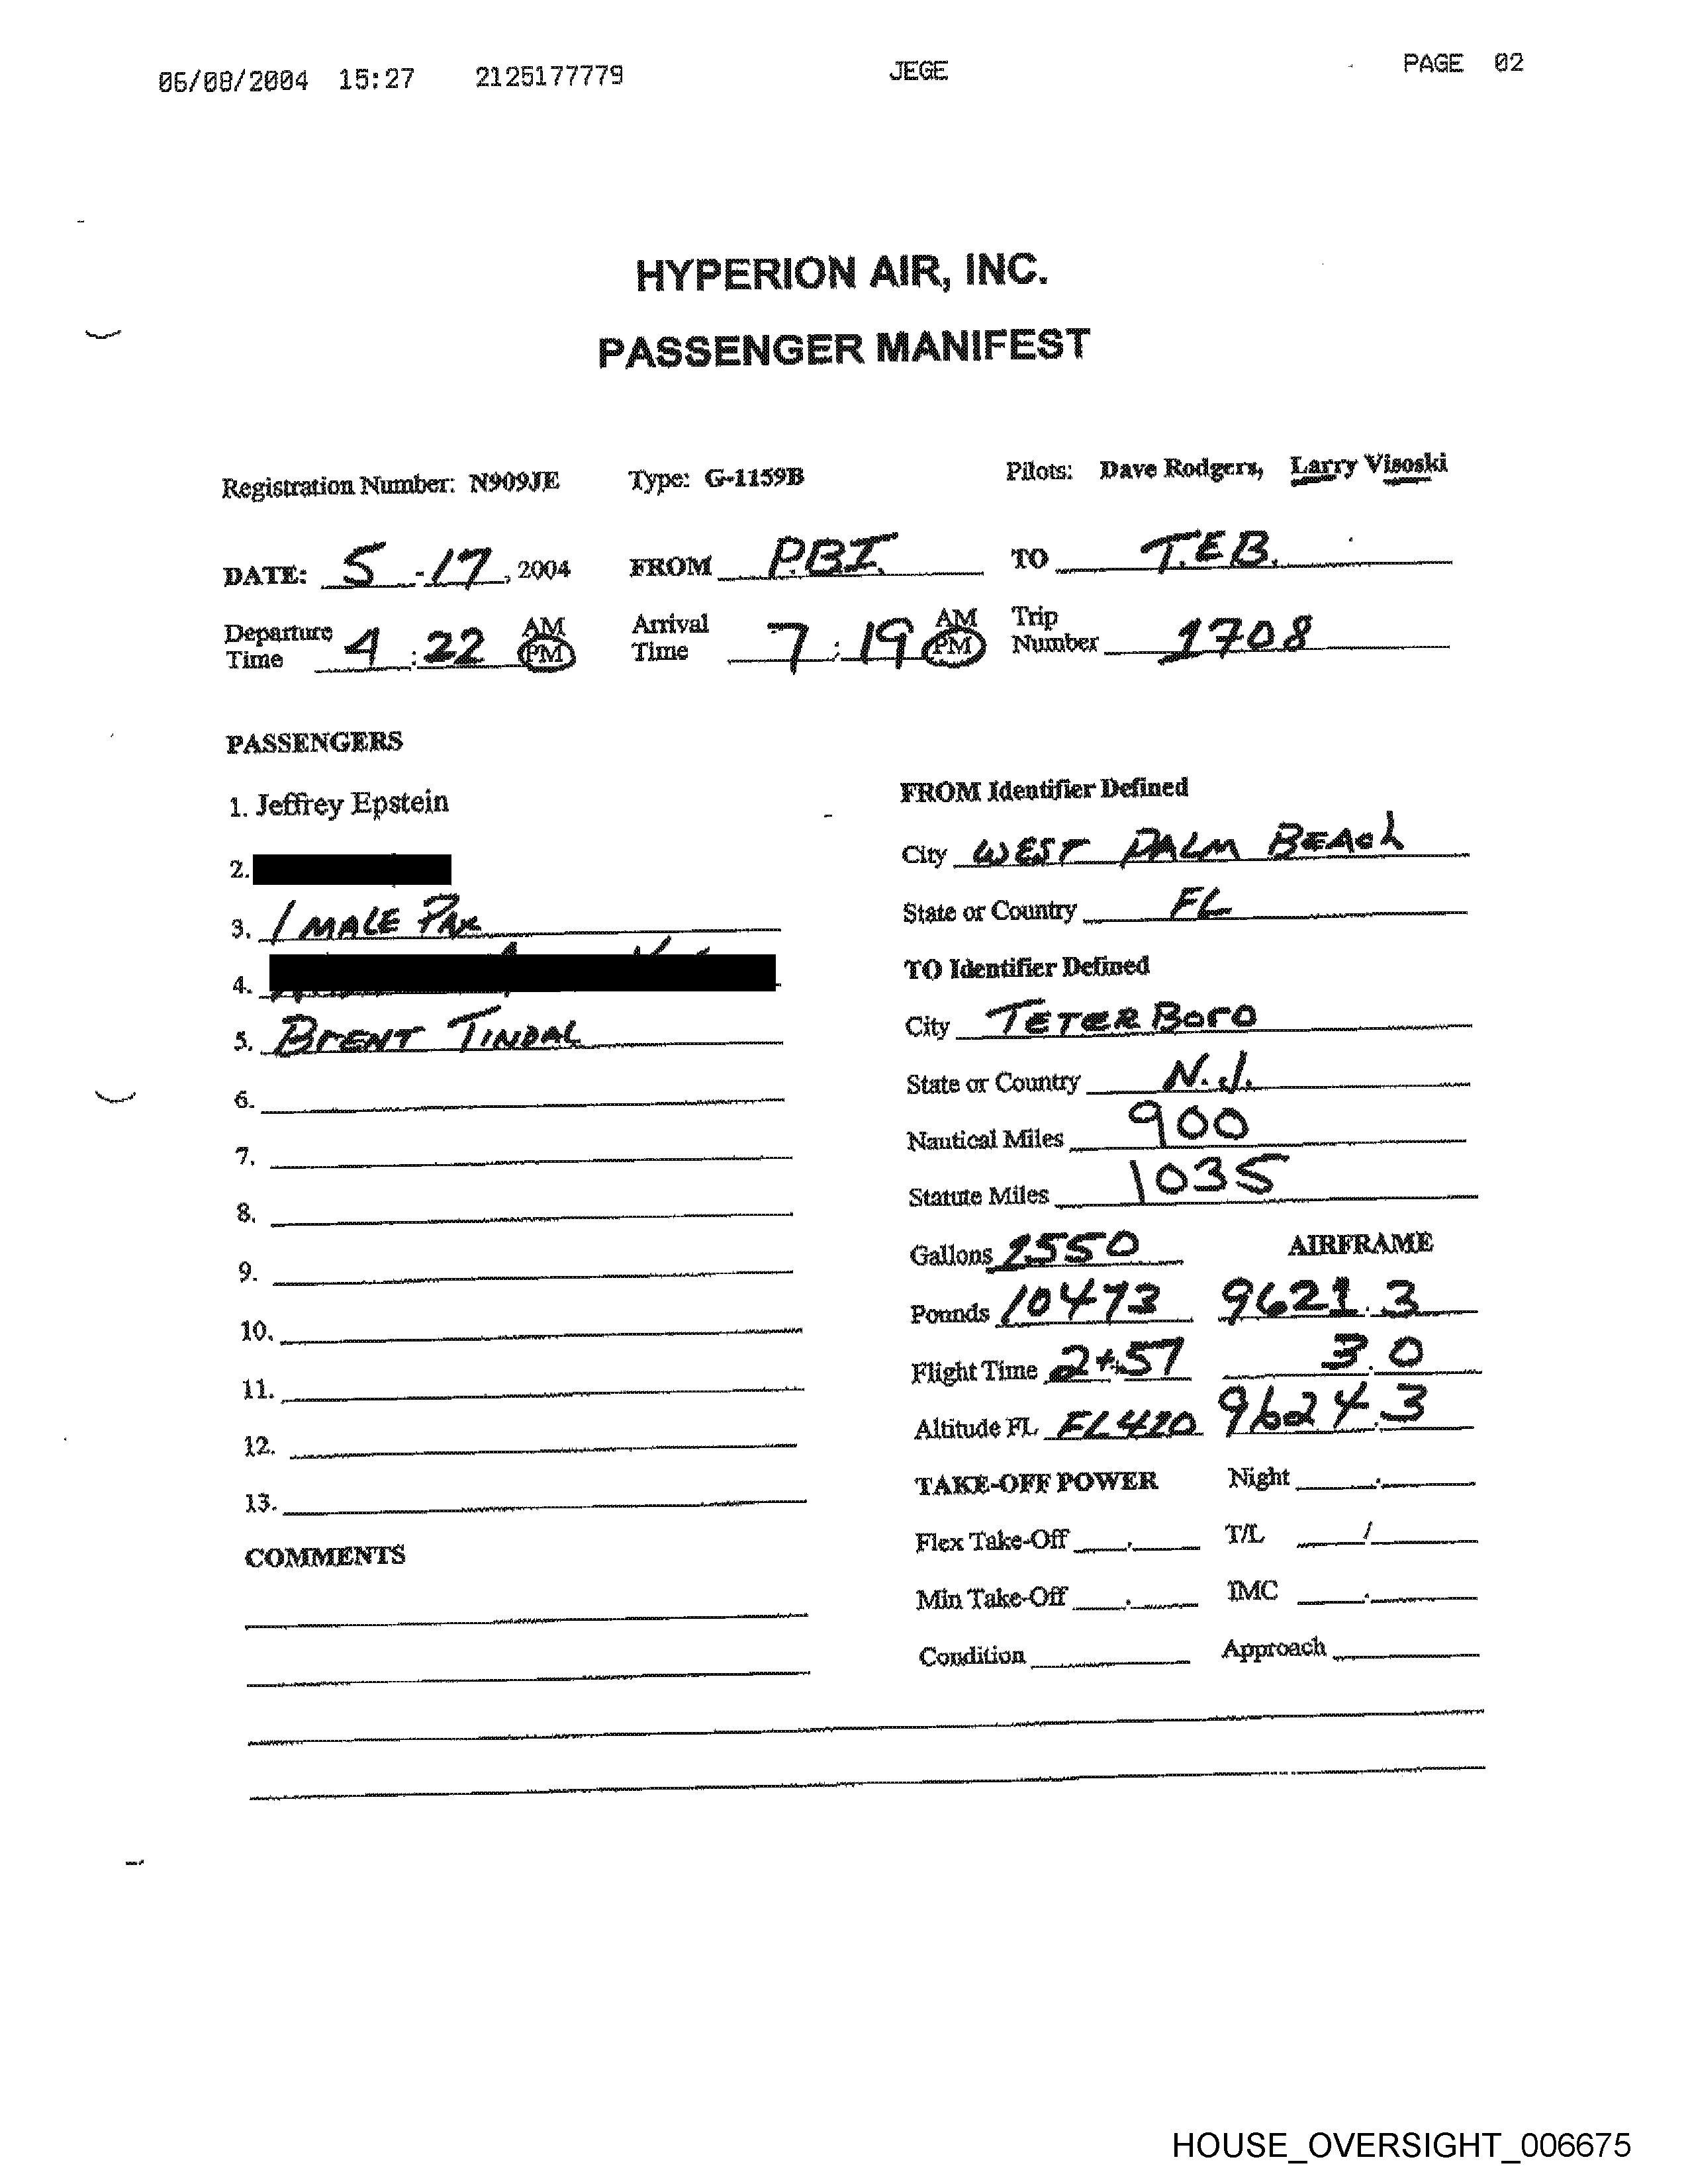 06/08/2004 15:27 2125177779 JEGE PAGE 02
HYPERION AIR, INC.
PASSENGER MANIFEST
Registration Number: N909JE Type: G-1159B Pilots: Dave Rodgers, Larry Visoski
DATE: 5-17, 2004 FROM P.B.I. TO T.E.B.
Departure Time 4:22 AM PM Arrival Time 7:19 AM PM Trip Number 1708
PASSENGERS
1. Jeffrey Epstein
2.
3. 1 MALE PAX
4.
5. BRENT TINDAL
6.
7.
8.
9.
10.
11.
12.
13.
COMMENTS
FROM Identifier Defined
City WEST PALM BEACH
State or Country FL
TO Identifier Defined
City TETERBORO
State or Country N.J.
Nautical Miles 900
Statute Miles 1035
Gallons 1550 AIRFRAME
Pounds 10473 9621.3
Flight Time 2+57 3.0
Altitude FL FL410 9624.3
TAKE-OFF POWER Night .
Flex Take-Off . T/L /
Min Take-Off . IMC .
Condition Approach
HOUSE_OVERSIGHT_006675